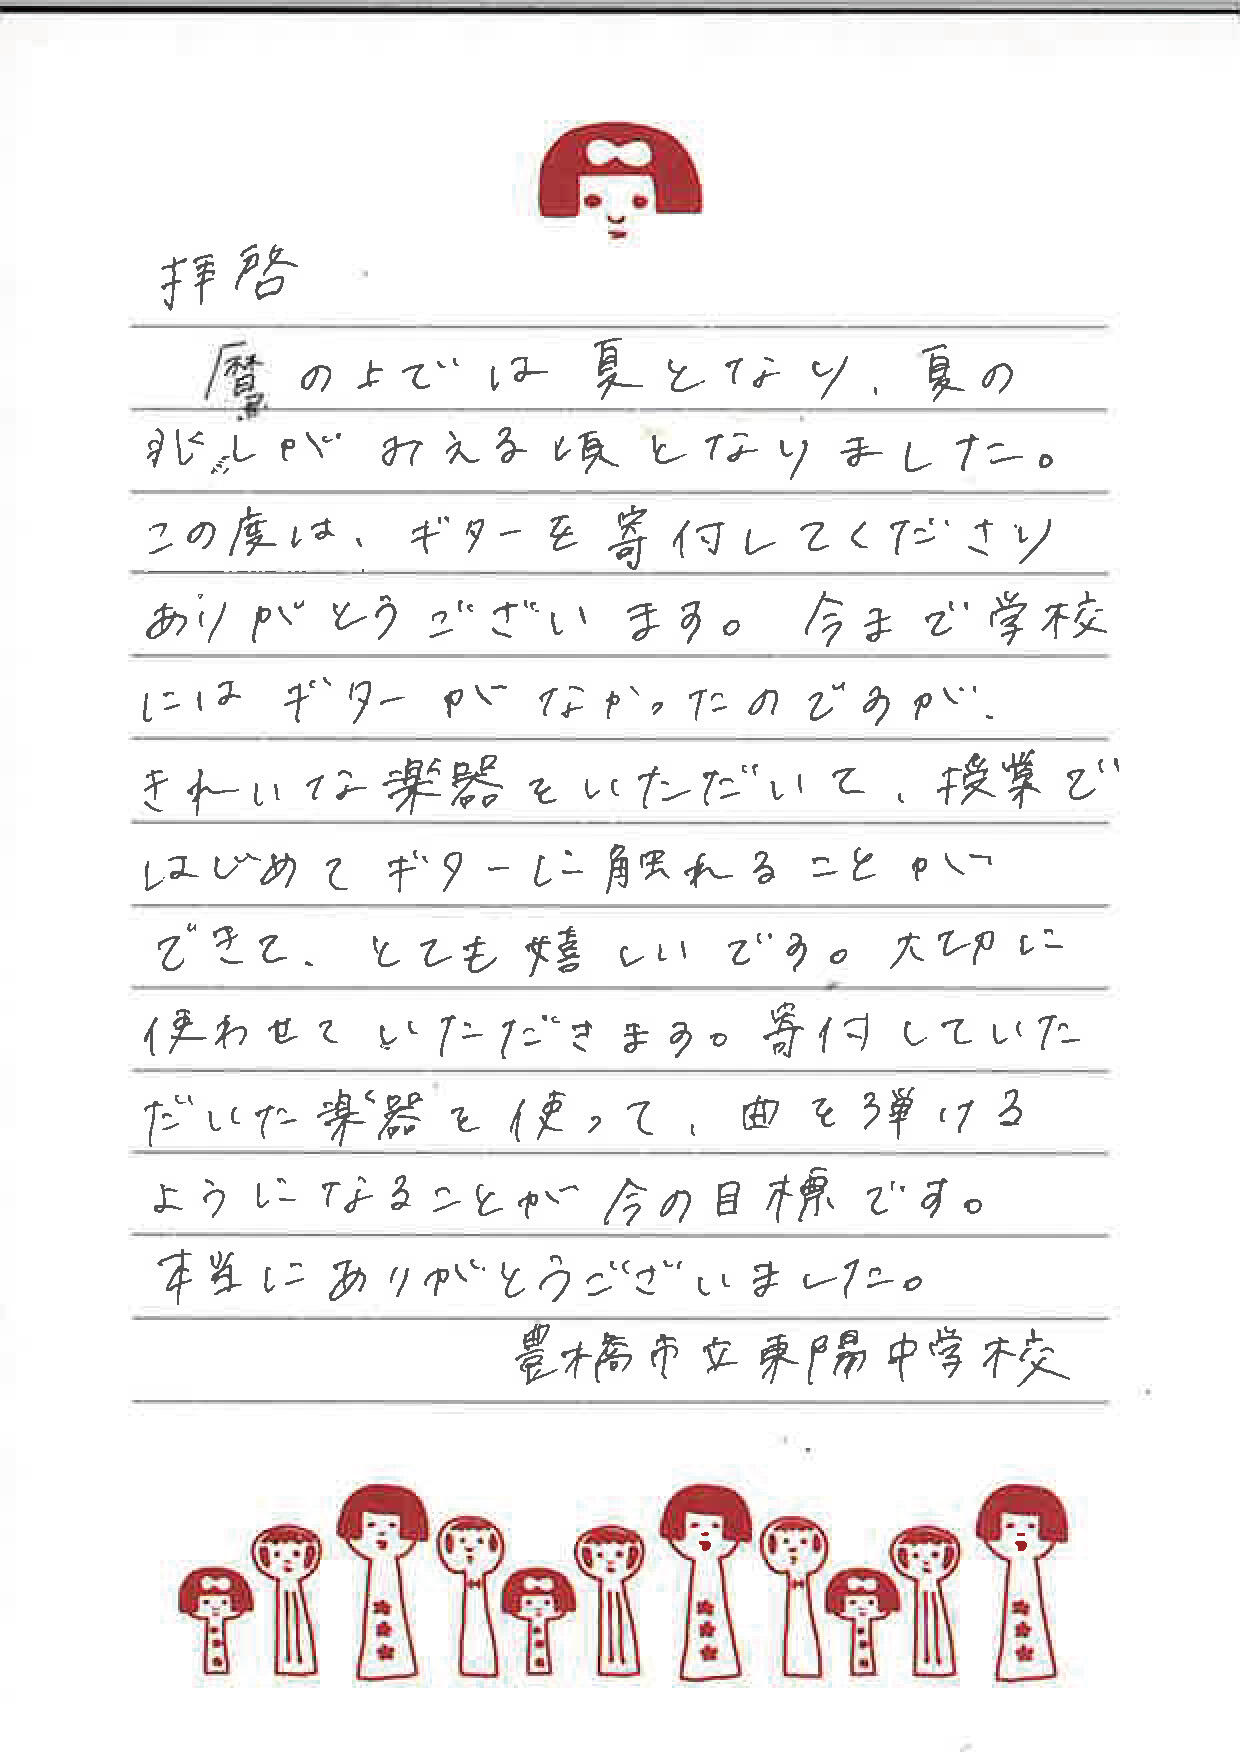 拝啓
暦の上では夏となり、夏の
兆しがみえる頃となりました。
この度は、ギターを寄付してくださり
ありがとうございます。今まで学校
にはギターがなかったのですが、
きれいな楽器をいただいて、授業で
はじめてギターに触れることが
できて、とても嬉しいです。大切に
使わせていただきます。寄付していた
だいた楽器を使って、曲を弾ける
ようになることが今の目標です。
本当にありがとうございました。
豊橋市立東陽中学校